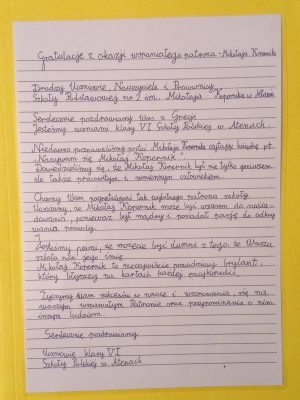 Gratulacje z okazji wspaniałego patrona - Mikołaja Kopernika
Drodzy Uczniowie, Nauczyciele i Pracownicy
Szkoły Podstawowej nr 2 im. Mikołaja Kopernika w
Serdecznie pozdrawiamy Was z Grecji
Jesteśmy uczniami klasy VI Szkoły Polskiej w Atenach.
Niedawno poznawaliśmy postać Mikołaja Kopernika czytając książkę pt.
"Nazywam się Mikołaj Kopernik".
Dowiedzieliśmy się, że Mikołaj Kopernik był nie tylko geniuszem
ale także prawdziwym i sumiennym człowiekiem.
Chcemy Wam pogratulować tak wybitnego patrona szkoły
Uważamy, że Mikołaj Kopernik może być wzorem do naśla-
dowania, ponieważ był mądry i posiadał pasję do odkry
wania prawdy.
Jesteśmy pewni, że możecie być dumni z tego, że Wasza
szkoła nosi jego imię.
Mikołaj Kopernik to rzeczywiście prawdziwy brylant,
który błyszczy na kartach każdej encyklopedii.
Życzymy Wam sukcesów w nauce i wzorowania się na
waszym wspaniałym Patronie oraz przypominania o nim
innym ludziom.
Serdecznie pozdrawiamy
Uczniowie klasy VI
Szkoły Polskiej w Atenach